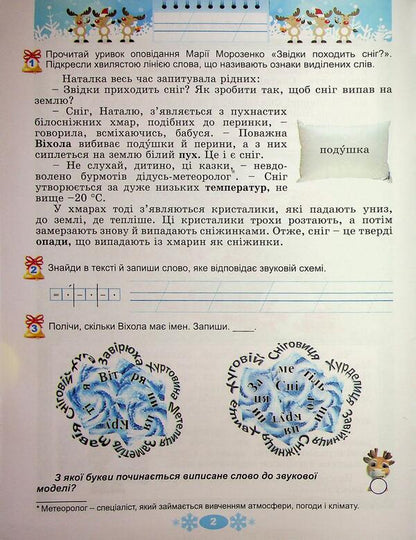 1 Прочитай уривок оповідання Марії Морозенко «Звідки походить сніг?».
Підкресли хвилястою лінією слова, що називають ознаки виділених слів.
Наталка весь час запитувала рідних:
– Звідки приходить сніг? Як зробити так, щоб сніг випав на
землю?
– Сніг, Наталю, з'являється з пухнастих
білосніжних хмар, подібних до перинки, –
говорила, всміхаючись, бабуся. – Поважна
Віхола вибиває подýшки й перини, а з них
сиплеться на землю білий пух. Це і є сніг.
– Не слухай, дитино, ці казки, – невдо-
волено бурмотів дідусь-метеоролог*. – Сніг
утворюється за дуже низьких температур, не
вище –20 °С.
подýшка
У хмарах тоді з'являються кристалики, які падають униз,
до землі, де тепліше. Ці кристалики трохи розтають, а потім
замерзають знову й випадають сніжинками. Отже, сніг – це тверді
опади, що випадають із хмарин як сніжинки.
2 Знайди в тексті й запиши слово, яке відповідає звуковій схемі.
3 Полічи, скільки Віхола має імен. Запиши. ____.
Сніговій Завірюха Хуртовина Метелиця Заметіль Завія
Віт ря
Хуговій Сніговиця Хурделиця
За ме Сні
З якої букви починається виписане слово до звукової
моделі?
* Метеоролог – спеціаліст, який займається вивченням атмосфери, погоди і клімату.
2